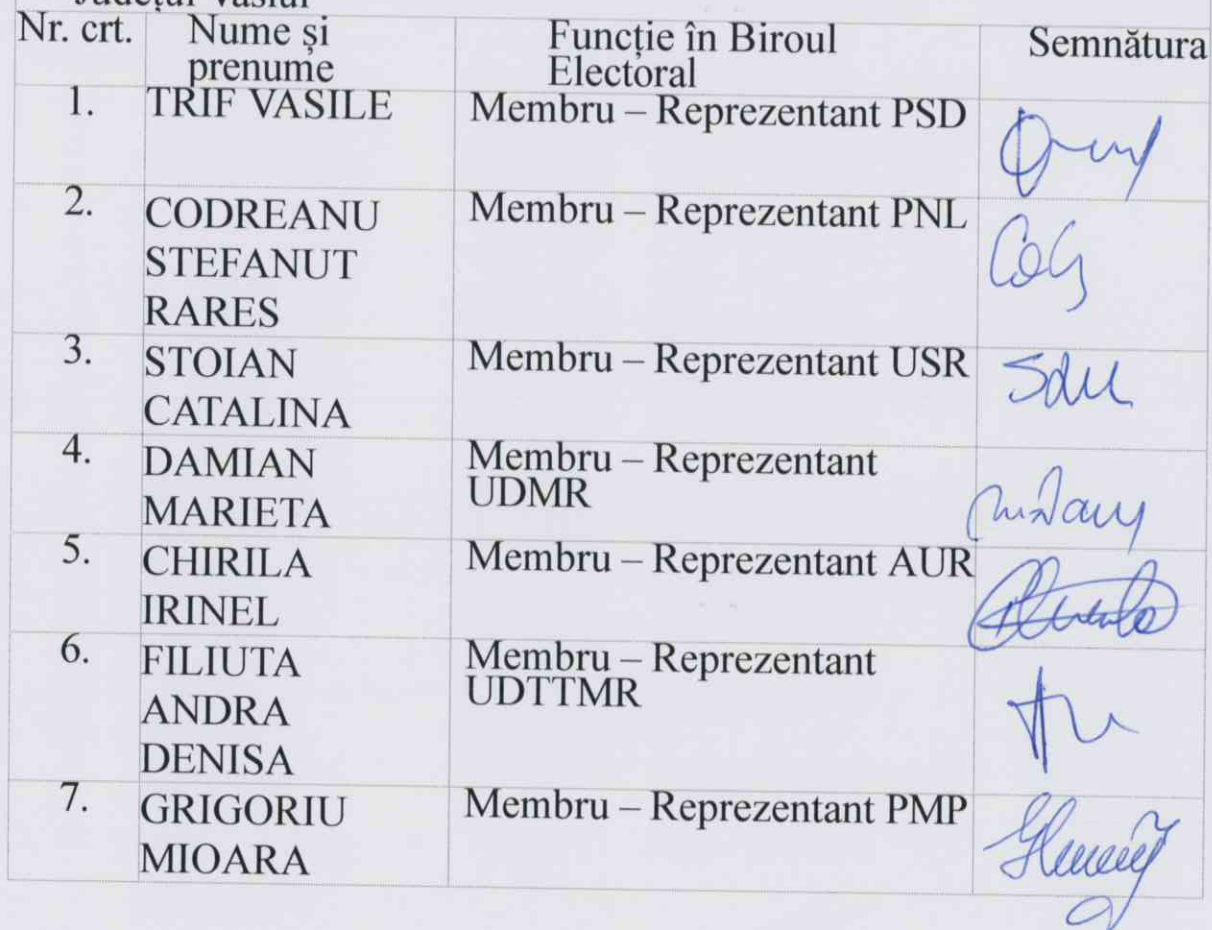 Județul Vaslui
Nr. crt. Nume și prenume Funcție în Biroul Electoral Semnătura
1. TRIF VASILE Membru – Reprezentant PSD
2. CODREANU STEFANUT RARES Membru – Reprezentant PNL
3. STOIAN CATALINA Membru – Reprezentant USR
4. DAMIAN MARIETA Membru – Reprezentant UDMR
5. CHIRILA IRINEL Membru – Reprezentant AUR
6. FILIUTA ANDRA DENISA Membru – Reprezentant UDTTMR
7. GRIGORIU MIOARA Membru – Reprezentant PMP